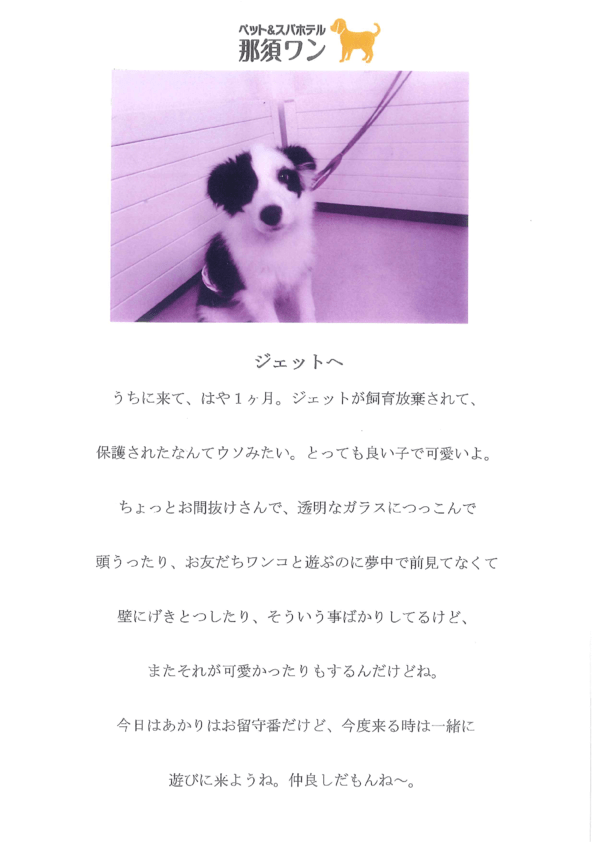 ペット&スパホテル
那須ワン
ジェットへ
うちに来て、はや１ヶ月。ジェットが飼育放棄されて、
保護されたなんてウソみたい。とっても良い子で可愛いよ。
ちょっとお間抜けさんで、透明なガラスにつっこんで
頭うったり、お友だちワンコと遊ぶのに夢中で前見てなくて
壁にげきとつしたり、そういう事ばかりしてるけど、
またそれが可愛かったりもするんだけどね。
今日はあかりはお留守番だけど、今度来る時は一緒に
遊びに来ようね。仲良しだもんね～。